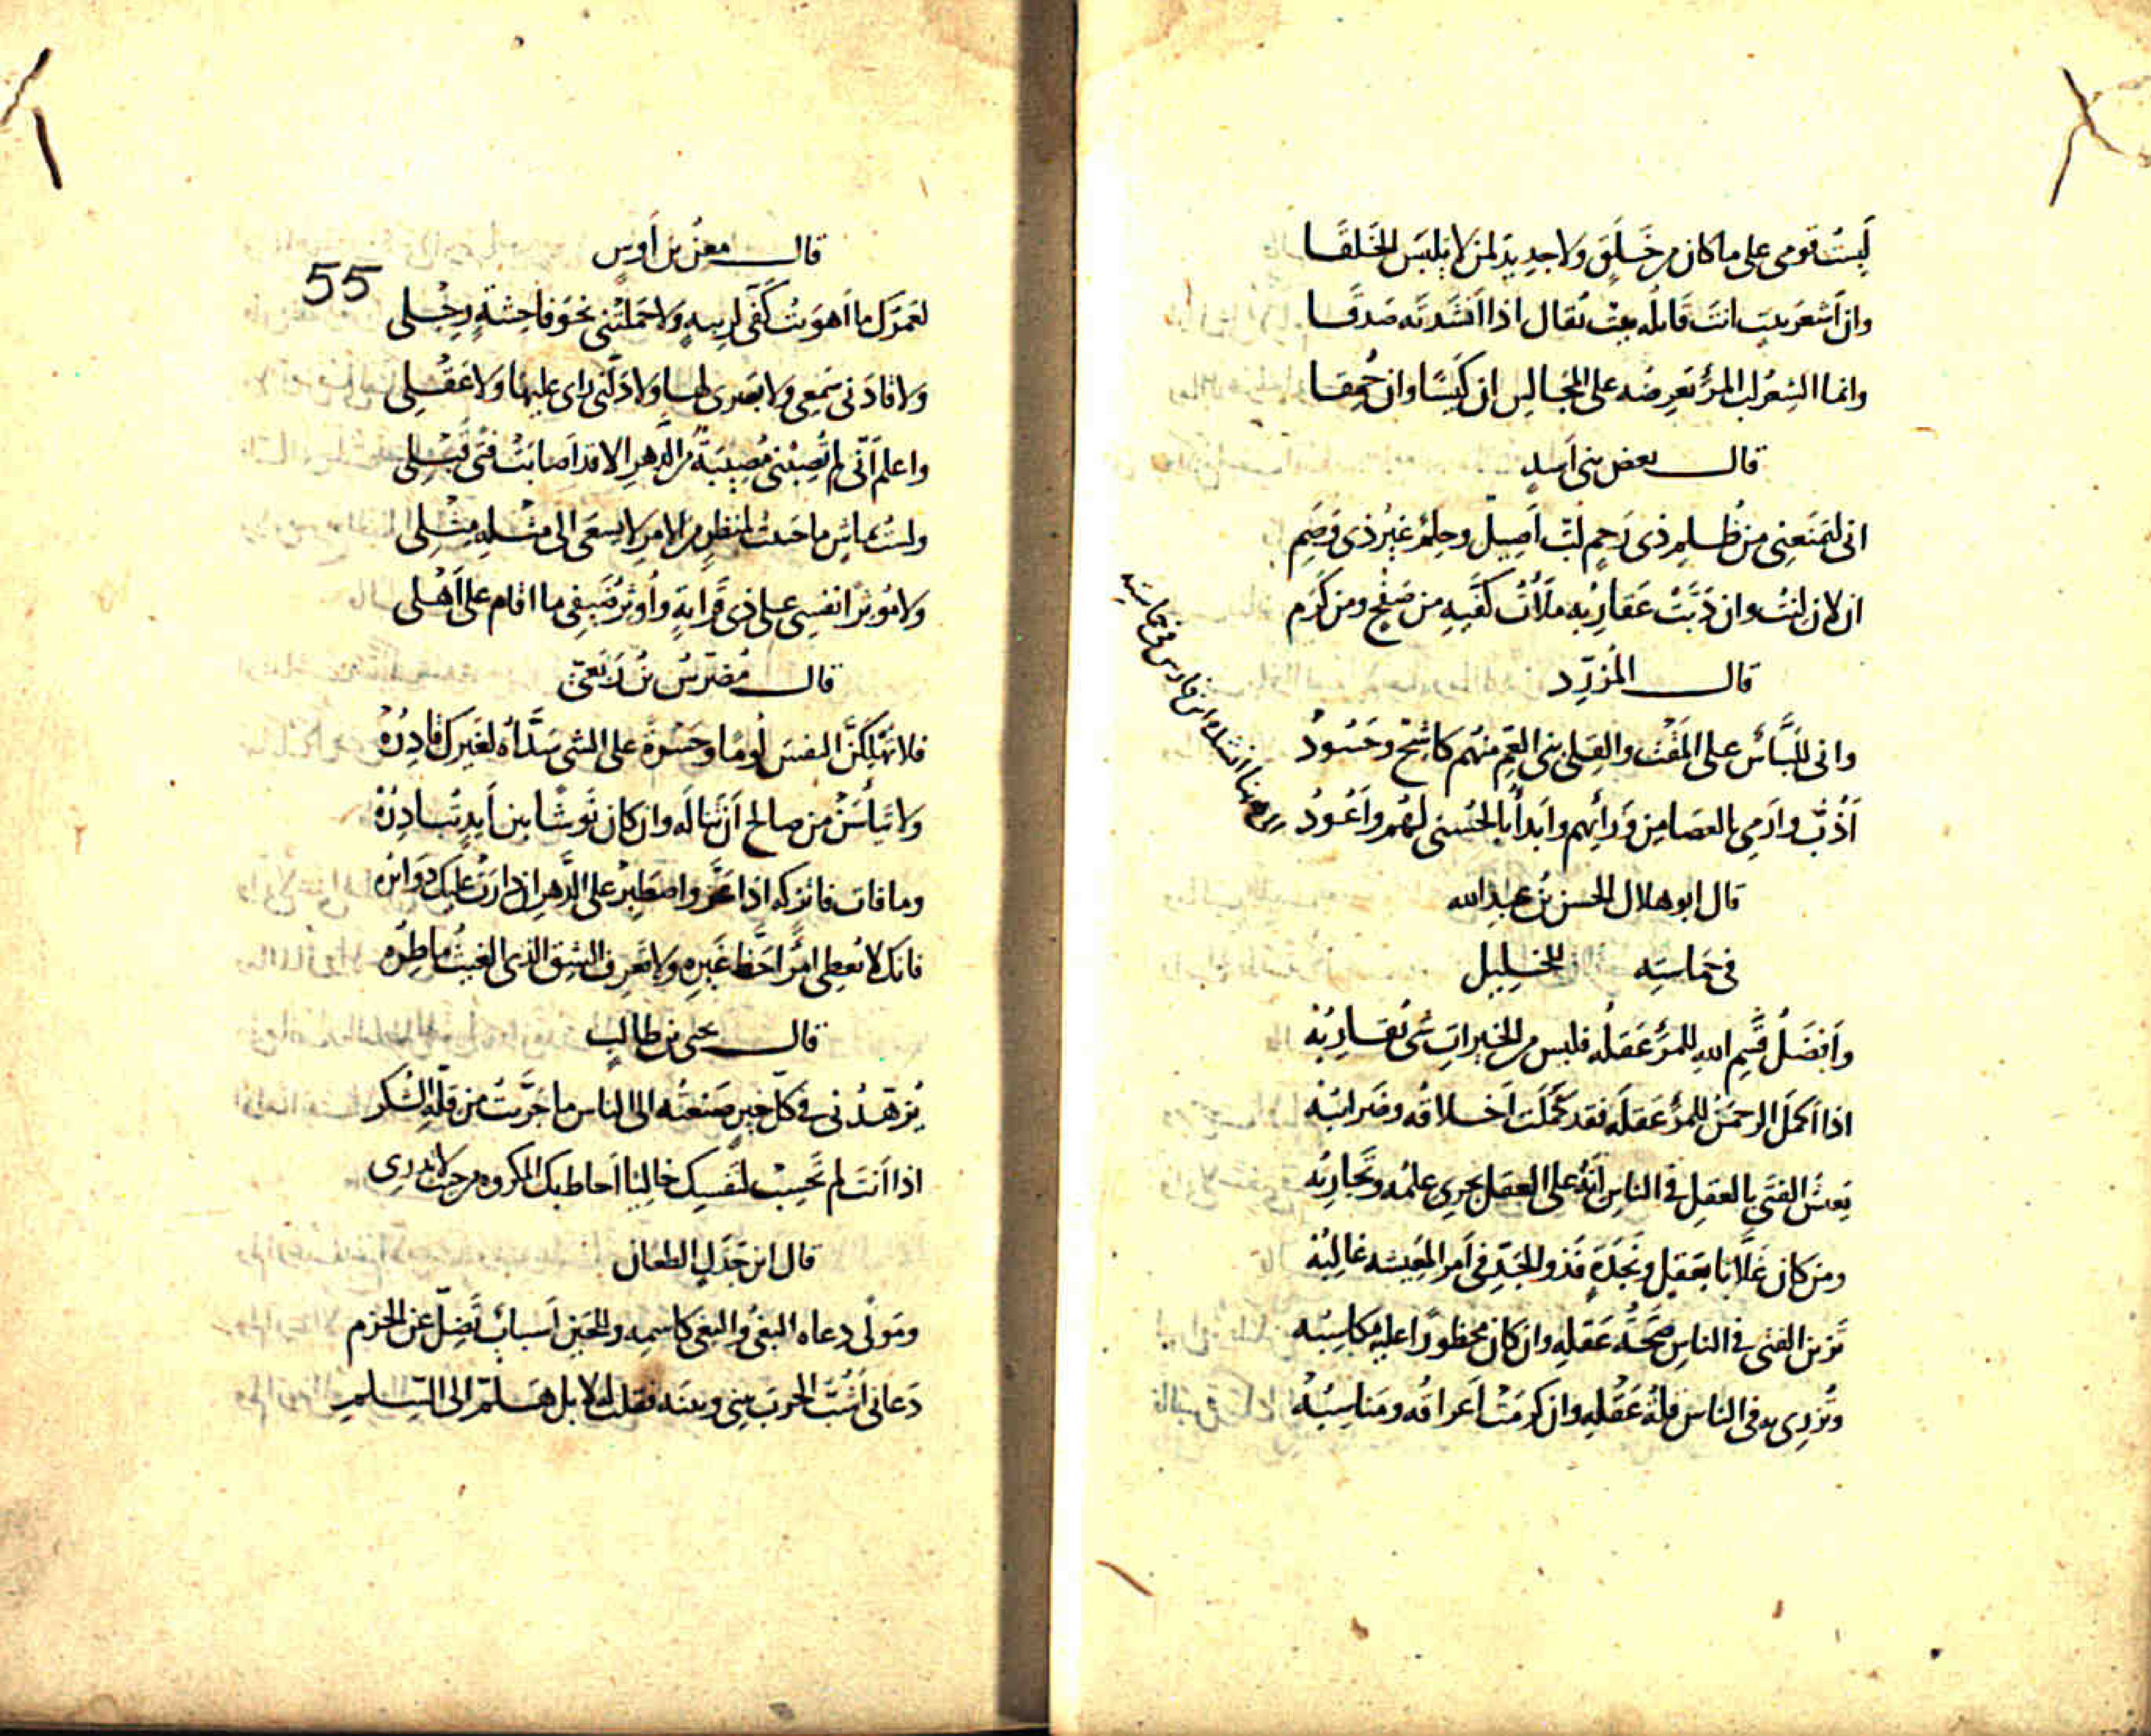 لَبِستُ قومى على ما كان من خَلَقٍ ولا جديدَ لمن لا يلبَس الخَلَقَا
وان أَشعَرَ بيتٍ انتَ قائلُه بيتٌ يُقال اذا اَنشَدتَه صَدَقَا
وانما الشِعرُ لبّ المرْءِ تعرِضُه على المجالِس ان كَيْسًا وان حُمقا
قال بعض بنى أسد
انى ليَمنَعنِى من ظُلمِ ذى رَحِمٍ لبٌّ أَصِيلٌ وحِلمٌ غيرُ ذى وَصَمِ
ان لان لنتُ وان دَبَّتْ عَقارِبُه ملَأتُ كفَّيهِ من صَفْحٍ ومن كرَمِ
قال المُزرّد
وانى للَبَّاسٌ على المَقْتِ والقِلى بنى العَمِّ منهُم كاشِحٌ وحَسُودُ
أَذُبُّ وارَمى بالعصَا من وَرائهِم وابَدأُ بالحُسنى لهُم وأعُودُ
هما انشده ابن فارس فى حماسته
قال ابو هلال الحسن بن عبد الله
فى حماسته للخليل
وأفضَلُ قَسْمِ اللهِ للمرْءِ عَقلُه فليس من الخيراتِ شئ يُقاربُه
اذا أكملَ الرحمنُ للمرْءِ عَقلَه فقد كَمُلَت أخلاقُه وضَرائبُه
يَعيشُ الفتَى بالعقلِ فى الناسِ انّهُ على العقلِ يجرِى علمُه وتجَاربُه
ومن كان غَلّابًا بعَقلٍ ونجَدَةٍ فذو الجَدِّ فى أمر المَعِيشه غالبُه
تَزين الفتى فى الناسِ صحَّةُ عَقلِهِ وان كان محظورًا عليه مكاسبُه
وتُزرِى به فى الناسِ قلّةُ عَقْلِهِ وان كرمَتْ أعراقُه ومَناسِبُهْ
55
قال معن بن أوسٍ
لعَمرُكَ ما أهوَيتُ كفّى لريبهٍ ولا حَمَلتْنى نحوَ فاحِشةٍ رِجْلى
ولا قادَنى سَمعِى ولا بَصَرى لها ولا دَلّنى رأى عليها ولا عَقْلى
واعلم أنّى لم تُصِبْنى مُصِيبَةٌ من الدهرِ الا قد أصابَتْ فتًى قبْلى
ولستُ بماشٍ ما حَييتُ لمنكرٍ من الامرِ لا يسعَى الى مثلهِ مثْلى
ولا مُوثِرًا نفسِى على ذى قَرابَةٍ وأوثرُ ضَيفِى ما اقام على أهْلى
قال مُضرّسُ بنُ رِبْعىّ
فلا تُهْلِكَنَّ النفسَ لومًا وحَسْرةً على الشى سَدّاهُ لغَيرِك قادِرُهْ
ولا تيأسَنْ من صالحٍ أنْ تنالَه وان كان نَوشًا بين أيدٍ تُبادِرُهْ
وما فات فاتركه اذا عزَّ واصطبِرْ على الدَّهرِ ان دارَتْ عليك دَوائرُه
فانك لا تُعطِى امرًا حَظَّ غَيرِهِ ولا تعَرِف الشِقَّ الذى الغيثُ ماطِرُه
قال يحيى بن طالبٍ
يُزهّدُنى فى كلّ خيرٍ صَنعتُه الى الناس ما جَرَّبتُ من قلّهِ الشكر
اذا أنتَ لم تحسِبْ لنَفسِك خاليًا أحاط بك المكروه من حيث لا تدرى
قال ابن جذل الطعان
ومَولًى دعاه البغىُ والبغى كاسمِه وللحَينِ أسبابٌ تَضِلّ عن الحزم
دَعانى أشُبُّ الحربَ بينى وبينه فقلت له لا بل هَلُمّ الى السِلمِ